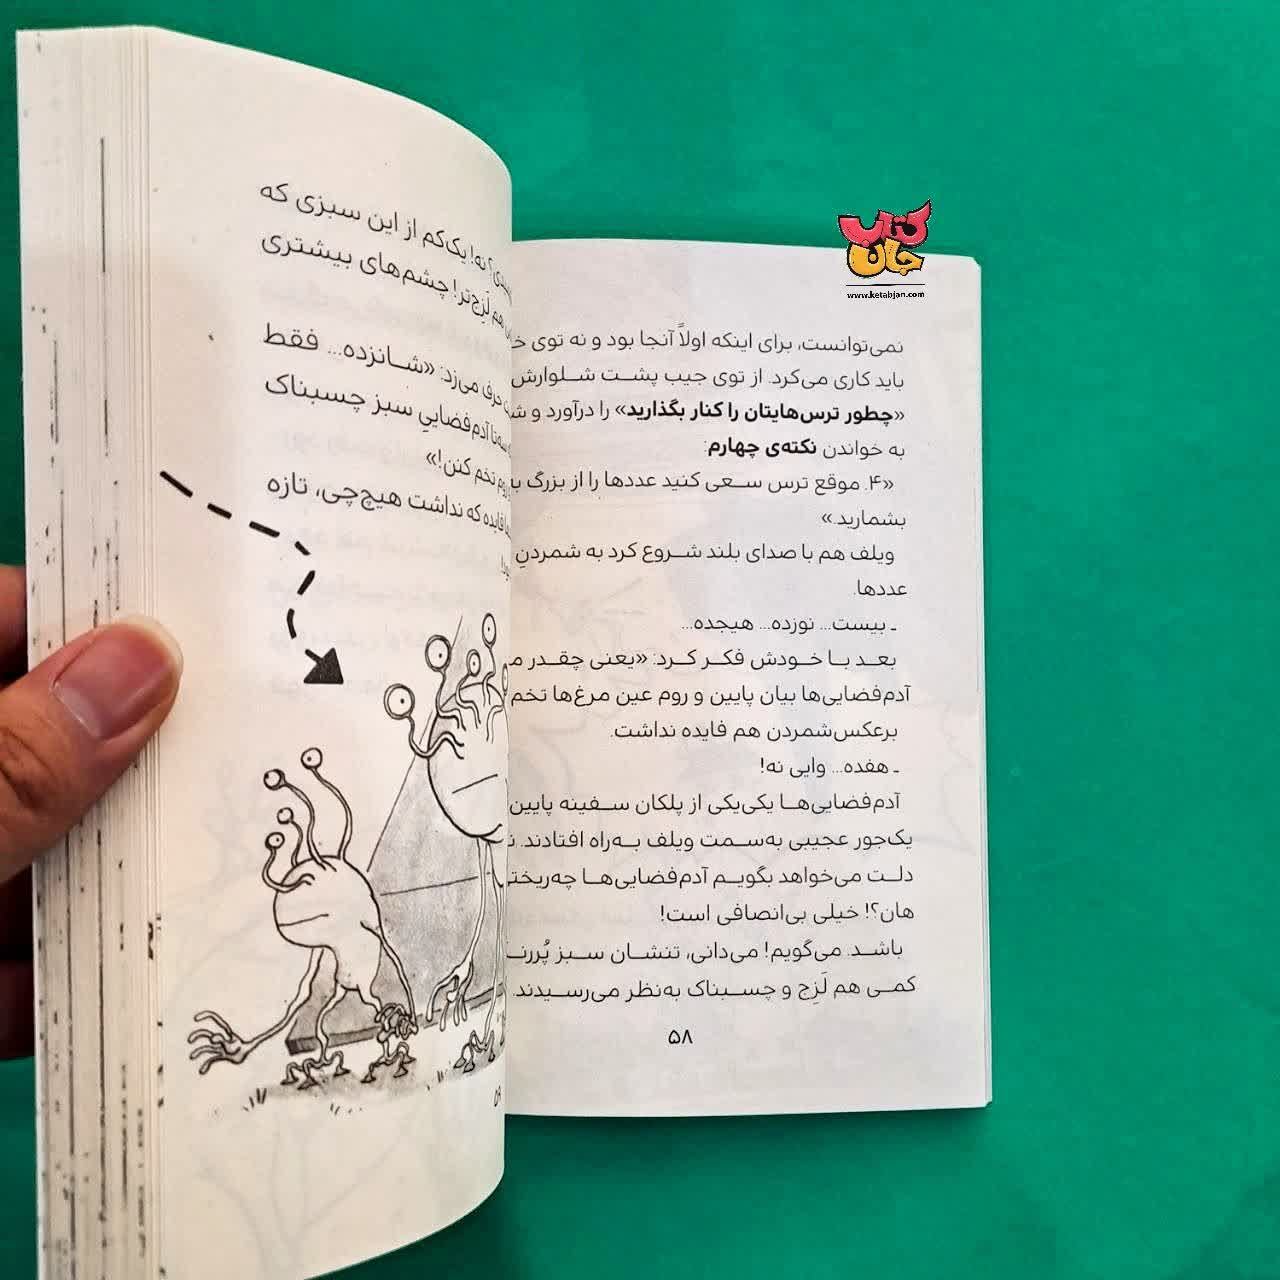 کتاب
جان
www.ketabjan.com
نمی‌توانست، برای اینکه اولاً آنجا بود و نه توی
باید کاری می‌کرد. از توی جیب پشت شلوارش
«چطور ترس‌هایتان را کنار بگذارید» را درآورد و
به خواندن نکته‌ی چهارم:
«۴. موقع ترس سعی کنید عددها را از بزرگ
بشمارید.»
ویلف هم با صدای بلند شروع کرد به شمردنِ
عددها.
ـ بیست... نوزده... هیجده...
بعد با خودش فکر کرد: «یعنی چقدر
آدم‌فضایی‌ها بیان پایین و روم عین مرغ‌ها تخم
برعکس‌شمردن هم فایده نداشت.
ـ هفده... وایی نه!
آدم‌فضایی‌ها یکی‌یکی از پلکان سفینه پایین
یک‌جور عجیبی به‌سمت ویلف به‌راه افتادند.
دلت می‌خواهد بگویم آدم‌فضایی‌ها
هان؟! خیلی بی‌انصافی است!
باشد. می‌گویم! می‌دانی، تنشان سبز
کمی هم لَزِج و چسبناک به‌نظر می‌رسیدند.
۵۸
نه! یک‌کم از این سبزی که
هم لَزِج‌تر! چشم‌های بیشتری
حرف می‌زد: «شانزده... فقط
آدم‌فضاییِ سبز چسبناک
روم تخم کنن!»
فایده که نداشت هیچ‌چی، تازه
۵۹